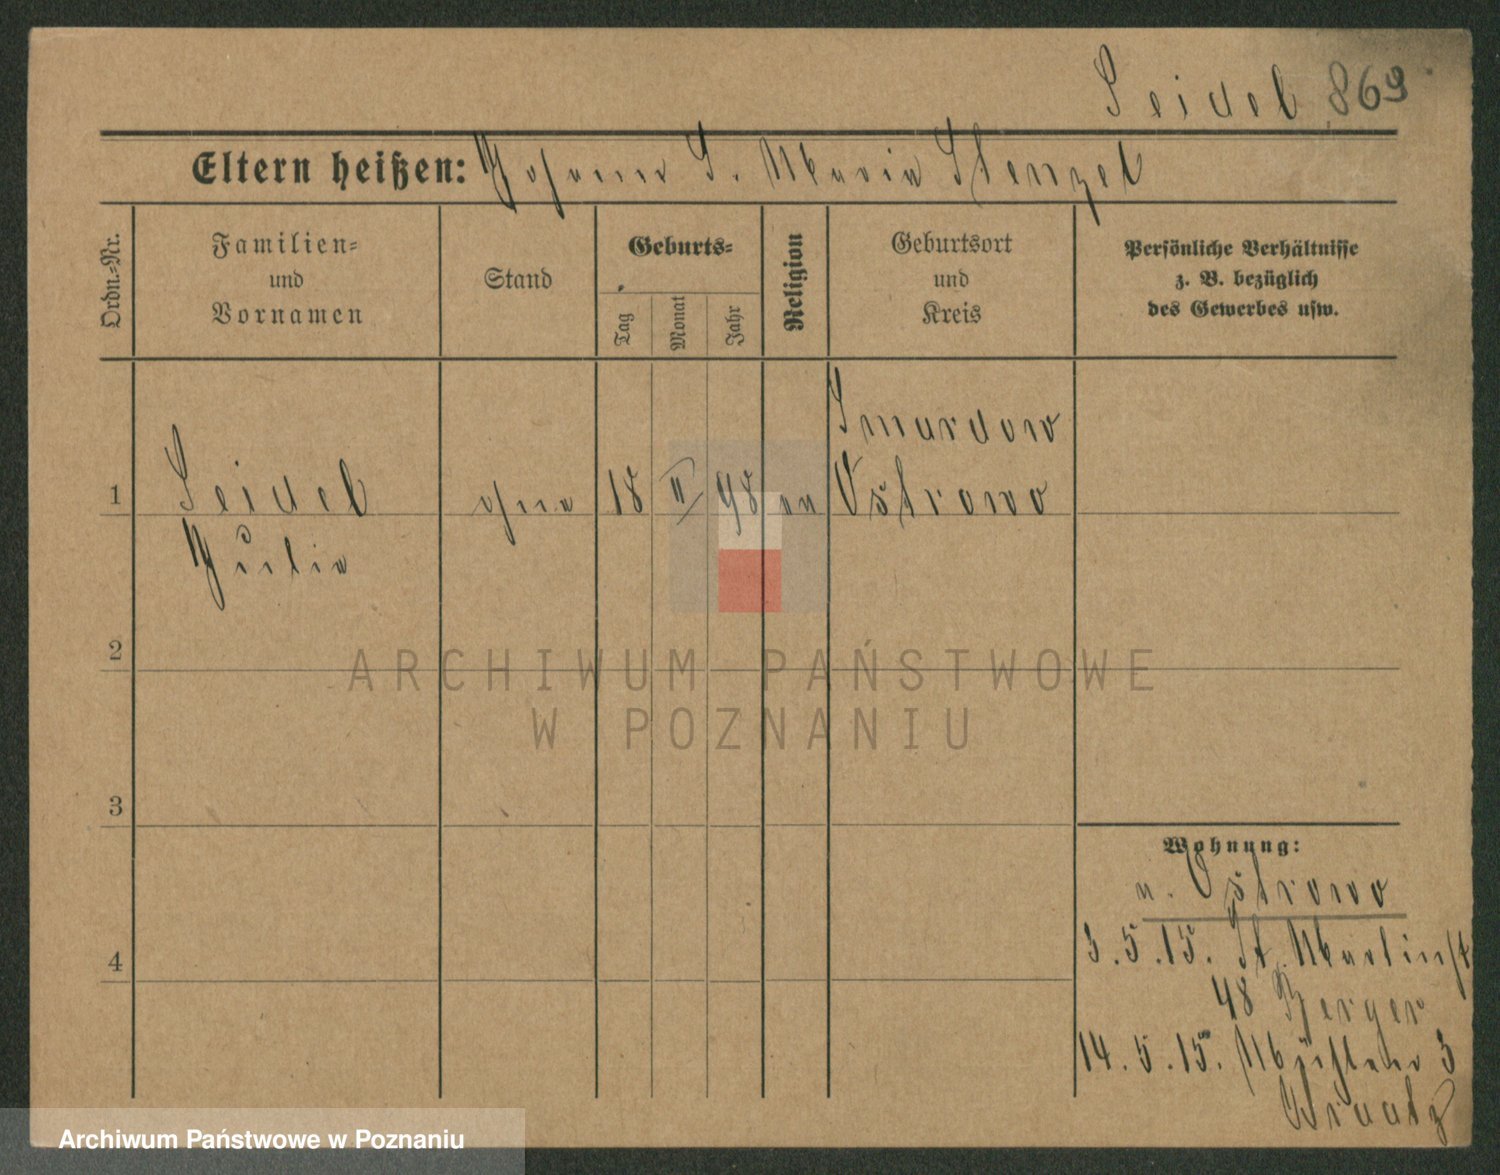 Seidel 869
Eltern heißen: Johann S. Maria Stenzel
Ordn.=Nr.
Familien=
und
Vornamen
Stand
Geburts=
Tag
Monat
Jahr
Religion
Geburtsort
und
Kreis
Persönliche Verhältnisse
z. B. bezüglich
des Gewerbes usw.
Smardow
1 Seidel ohne 18 II 98 ev Ostrowo
Julie
2
ARCHIWUM PAŃSTWOWE
W POZNANIU
3
Wohnung:
n. Ostrowo
3.5.15. St. Martinst
4
48 Berger
14.5.15. 3
Archiwum Państwowe w Poznaniu